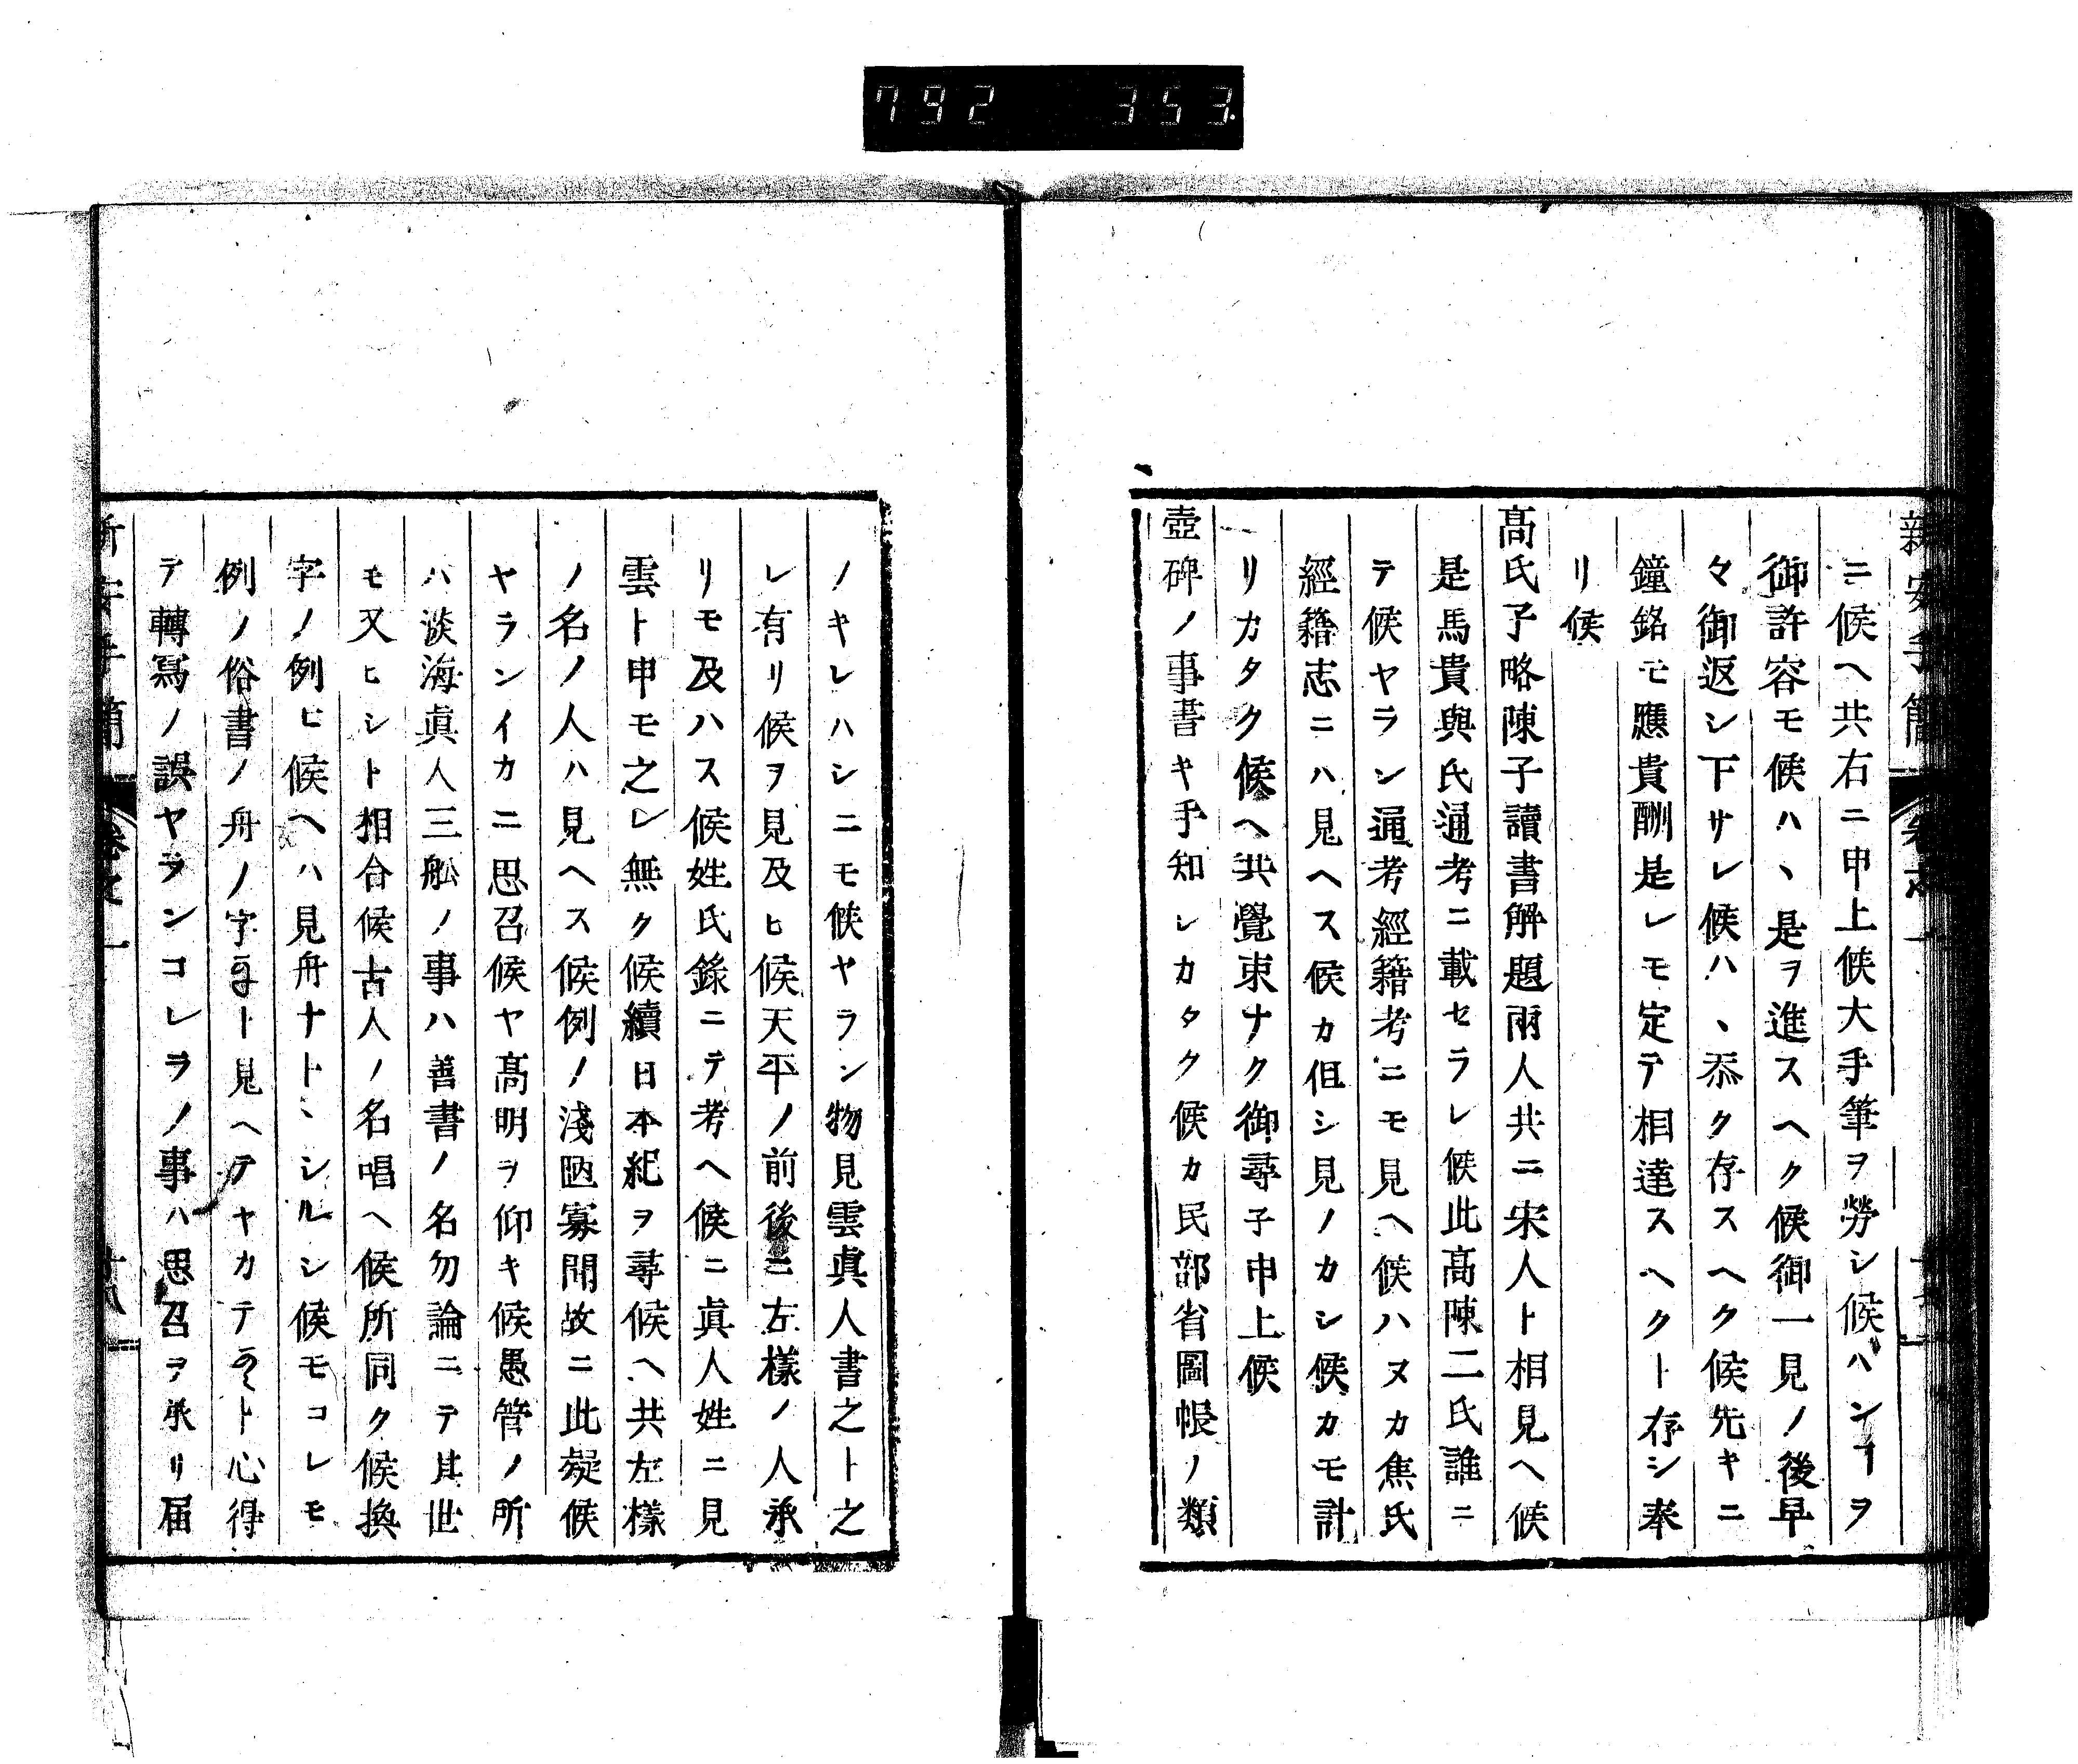 792 353.
新安手簡
ニ候ヘ共右ニ申上候大手筆ヲ勞シ候ハンヿヲ
御許容モ候ハヽ是ヲ進スヘク候御一見ノ後早
々御返シ下サレ候ハヽ忝ク存スヘク候先キニ
鐘銘モ應貴酬是レモ定テ相達スヘクト存シ奉
リ候
髙氏子略陳子讀書解題兩人共ニ宋人ト相見ヘ候
是馬貴與氏通考ニ載セラレ候此髙陳二氏誰ニ
テ候ヤラン通考經籍考ニモ見ヘ候ハヌカ焦氏
經籍志ニハ見ヘス候カ但シ見ノカシ候カモ計
リカタク候ヘ共覺束ナク御尋子申上候
壺碑ノ事書キ手知レカタク候カ民部省圖帳ノ類
ノキレハシニモ候ヤラン物見雲眞人書之ト之
レ有リ候ヲ見及ヒ候天平ノ前後ニ左樣ノ人承
リモ及ハス候姓氏錄ニテ考ヘ候ニ眞人姓ニ見
雲ト申モ之レ無ク候續日本紀ヲ尋候ヘ共左樣
ノ名ノ人ハ見ヘス候例ノ淺陋寡聞故ニ此疑候
ヤランイカニ思召候ヤ髙明ヲ仰キ候愚管ノ所
ハ淡海眞人三舩ノ事ハ善書ノ名勿論ニテ其世
モ又ヒシト相合候古人ノ名唱ヘ候所同ク候換
字ノ例ヒ候ヘハ見舟ナトヽシルシ候モコレモ
例ノ俗書ノ舟ノ字ト見ヘテヤカテト心得
テ轉寫ノ誤ヤランコレラノ事ハ思召ヲ承リ届
新安手簡 卷之一 廿八